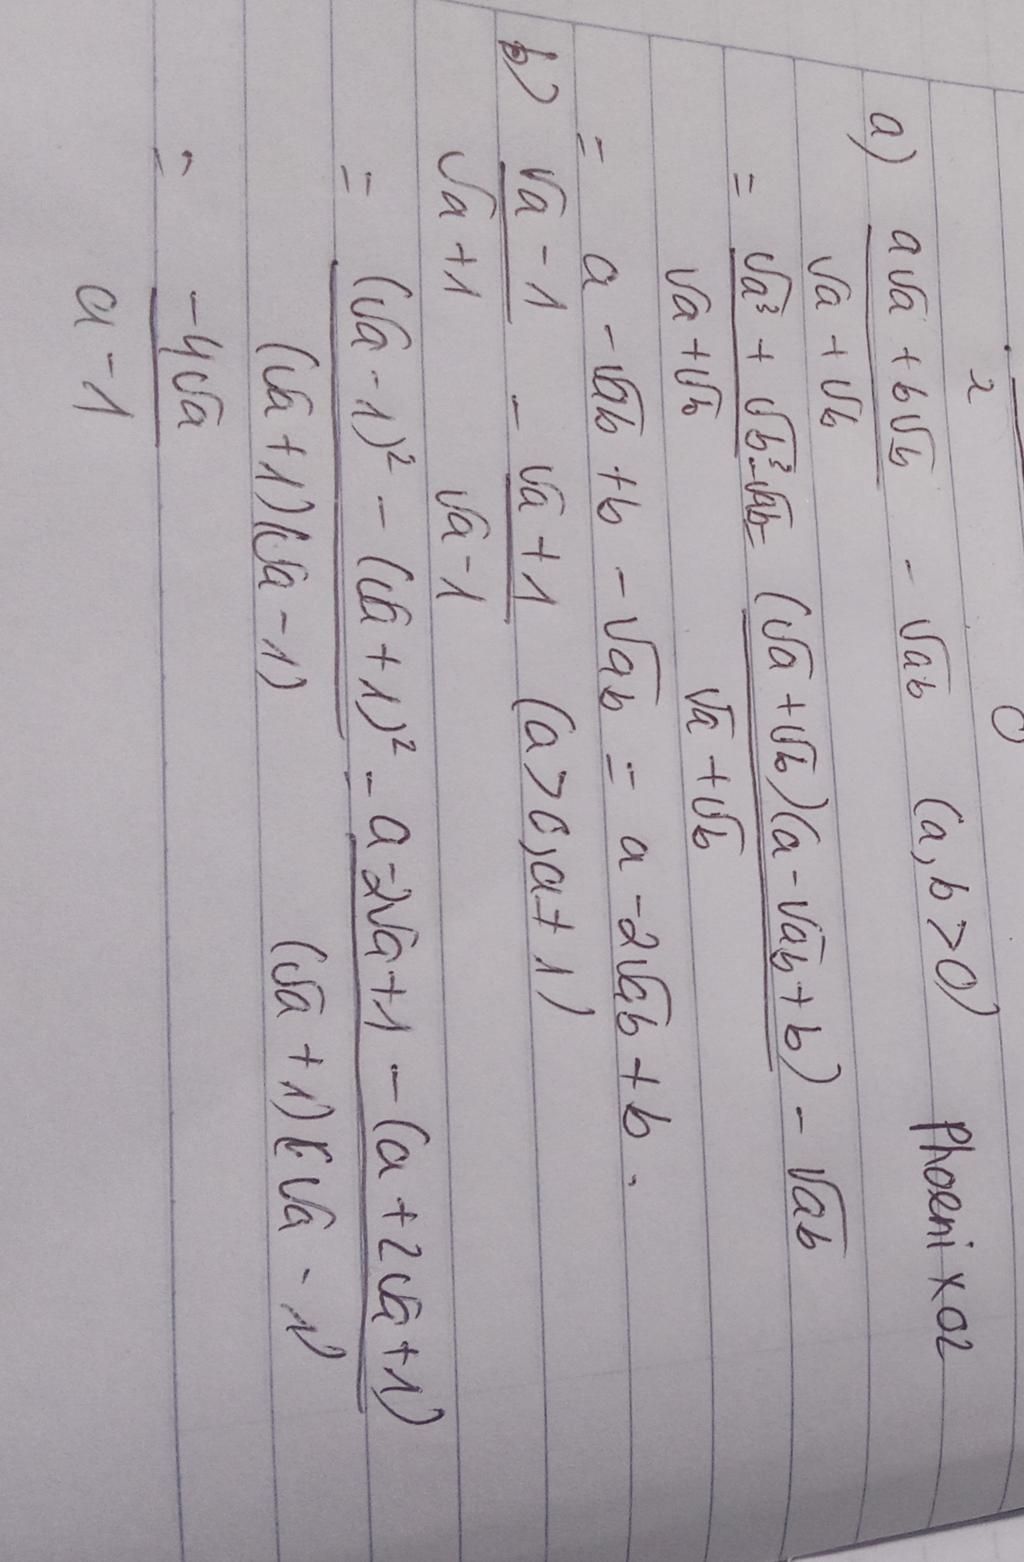 a) (a√a + b√b)/(√a + √b) - √ab (a, b > 0) Phoenix02
= (√a³ + √b³)/(√a + √b) - √ab = ((√a + √b)(a - √ab + b))/(√a + √b) - √ab
= a - √ab + b - √ab = a - 2√ab + b.
b) (√a - 1)/(√a + 1) - (√a + 1)/(√a - 1) (a > 0, a ≠ 1)
= ((√a - 1)² - (√a + 1)²)/((√a + 1)(√a - 1)) = (a - 2√a + 1 - (a + 2√a + 1))/((√a + 1)(√a - 1))
= (-4√a)/(a - 1)